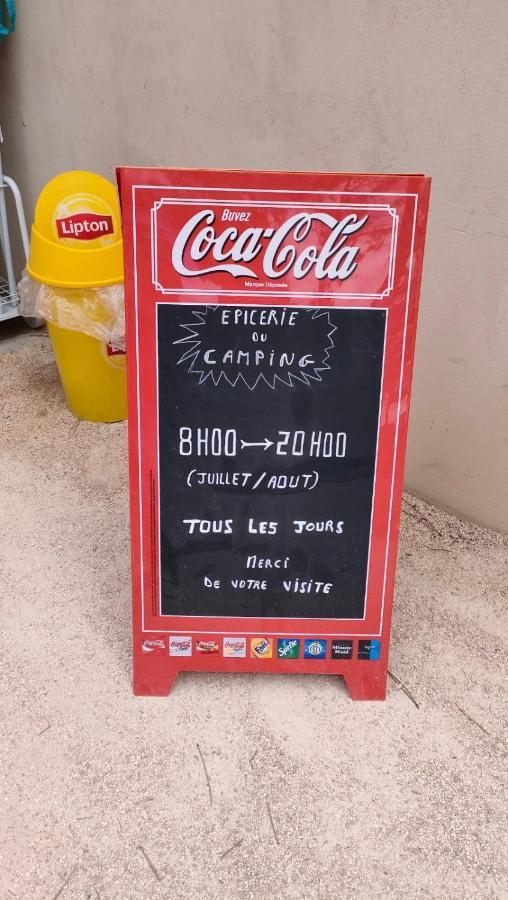 Lipton
Buvez
Coca-Cola
Marque Déposée
EPICERIE
OU
CAMPING
8H00 → 20H00
(JUILLET/AOUT)
TOUS LES JOURS
MERCI
DE VOTRE VISITE
Sprite
Minute
Maid